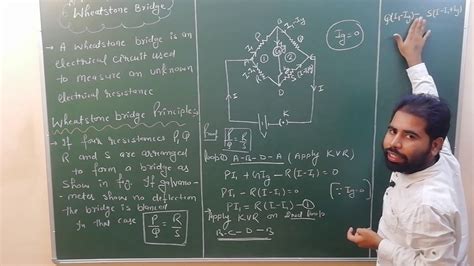 Wheatstone Bridge
→ A wheatstone bridge is an
electrical circuit used
to measure an unknown
electrical resistance
Wheatstone bridge Principle:-
→ If four resistances P, Q,
R and S are arranged
to form a bridge as
show in fig. If galvano-
-meter show no deflection
the bridge is blanced
In that case P/Q = R/S
B
P
I₁
I₁-Ig
Q
A
①
②
C
R
I-I₁
S
D
I
I
K
Ig = 0
Proof P/Q = R/S
Loop① A-B-D-A (Apply KVR)
PI₁ + GIg - R(I-I₁) = 0
PI₁ - R(I-I₁) = 0 (∵ Ig=0)
PI₁ = R(I-I₁) —①
→ Apply KVR on Second Loop
B-C-D-B
Q(I₁-Ig) - S(I-I₁+Ig)